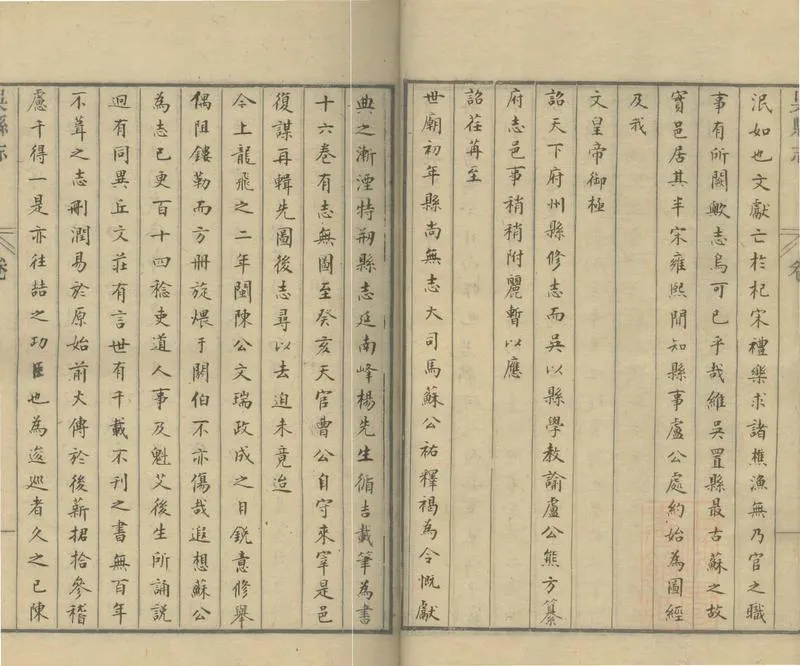 泯如也文獻亡於杞宋禮樂求諸樵漁無乃官之職
事有所闕歟志烏可已乎哉維吳置縣最古蘇之故
實邑居其半宋雍熙間知縣事盧公處約始為圖經
及我
文皇帝御極
詔天下府州縣修志而吳以縣學教諭盧公熊方纂
府志邑事稍稍附麗暫以應
詔荏苒至
世廟初年縣尚無志大司馬蘇公祐釋褐為令慨獻
典之漸湮特朔縣志延南峰楊先生循吉載筆為書
十六卷有志無圖至癸亥天官曹公自守來宰是邑
復謀再輯先圖後志尋以去迫未竟迨
今上龍飛之二年閩陳公文瑞政成之日銳意修舉
偶阻鏤勒而方冊旋煨于閼伯不亦傷哉追想蘇公
為志已更百十四稔吏道人事及魁艾後生所誦說
迥有同異丘文莊有言世有千載不刊之書無百年
不葺之志刪潤易於原始前大傳於後薪捃拾參稽
慮千得一是亦往喆之功臣也為逡巡者久之已陳
吳縣志
卷
一